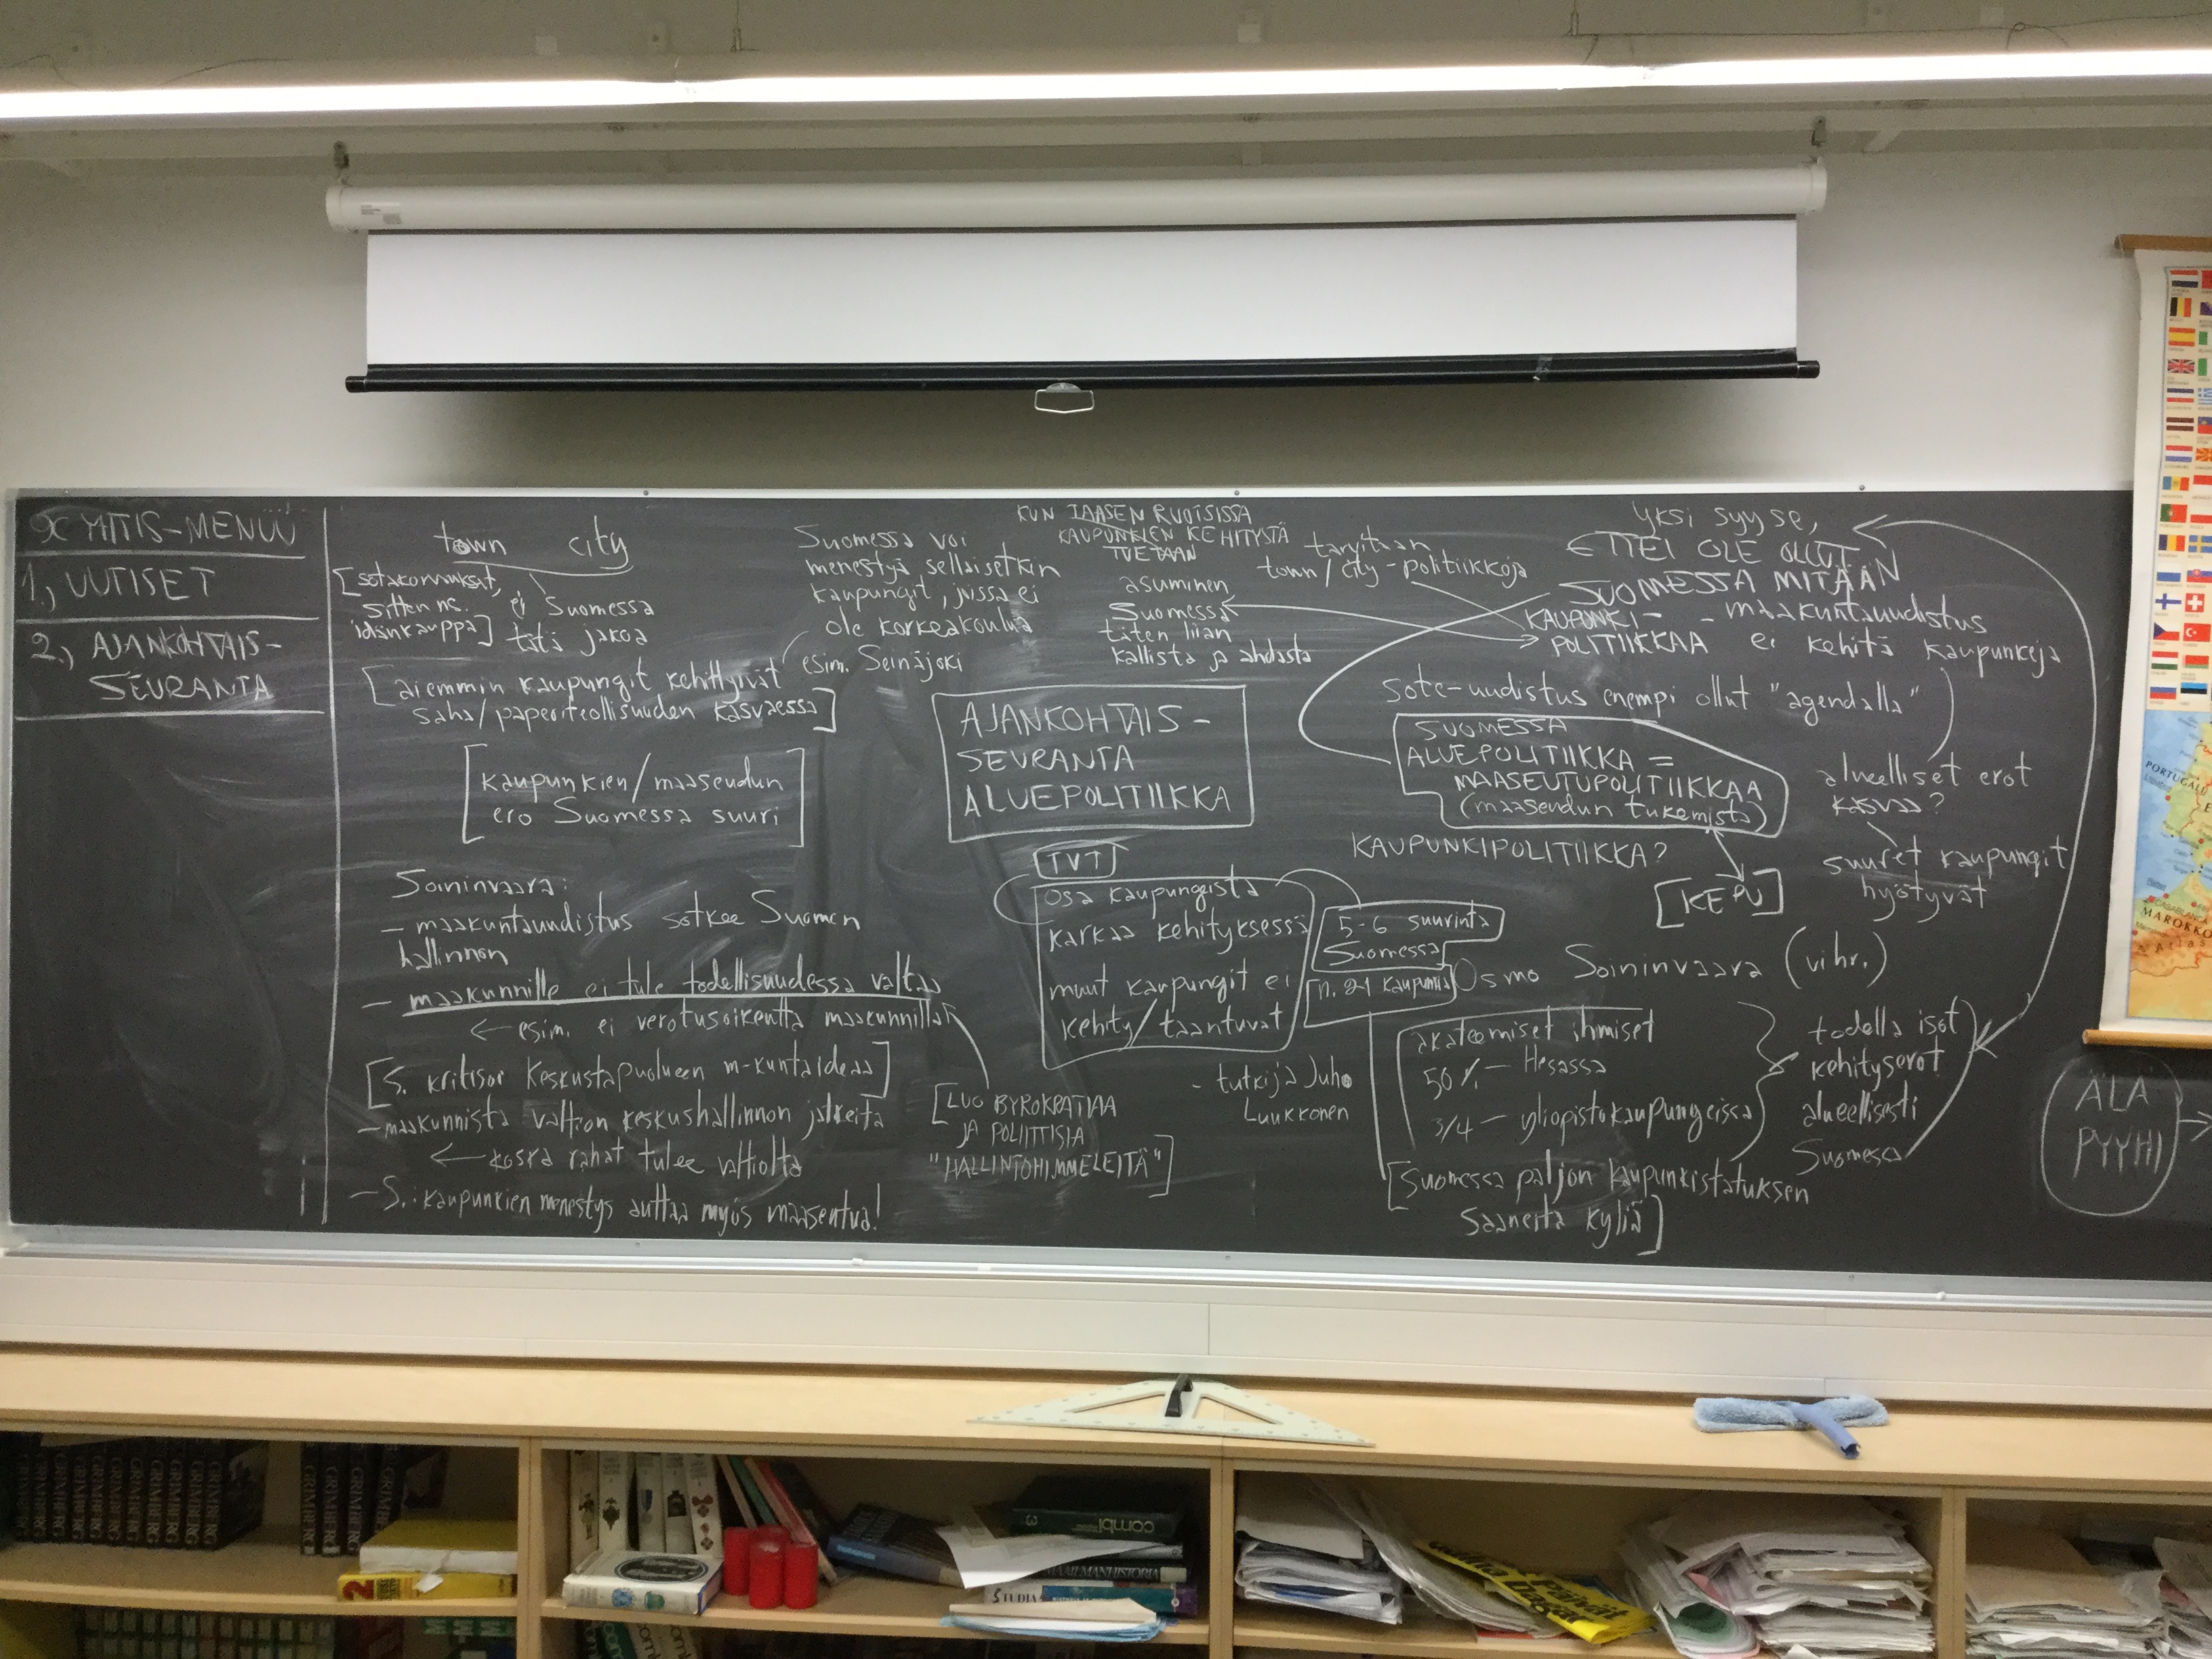 9C YHIS-MENUU
1.) UUTISET
2.) AJANKOHTAIS-
SEURANTA
town city
[sotakorvaukset,
sitten ns.
idänkauppa]
ei Suomessa
tätä jakoa
[aiemmin kaupungit kehittyivät
saha/paperiteollisuuden kasvaessa]
[kaupunkien/maaseudun
ero Suomessa suuri]
Soininvaara:
- maakuntauudistus sotkee Suomen
hallinnon
- maakunnille ei tule todellisuudessa valtaa
← esim. ei verotusoikeutta maakunnilla
[S. kritisoi Keskustapuolueen m-kuntaideaa]
- maakunnista valtion keskushallinnon jatkeita
← koska rahat tulee valtiolta
- S.: kaupunkien menestys auttaa myös maaseutua!
Suomessa voi
menestyä sellaisetkin
kaupungit, joissa ei
ole korkeakoulua
esim. Seinäjoki
KUN TAASEN RUOTSISSA
KAUPUNKIEN KEHITYSTÄ
TUETAAN
asuminen
Suomessa
täten liian
kallista ja ahdasta
tarvitaan
town/city-politiikkoja
AJANKOHTAIS-
SEURANTA
ALUEPOLITIIKKA
TVT
osa kaupungeista
karkaa kehityksessä
muut kaupungit ei
kehity/taantuvat
5-6 suurinta
Suomessa
n. 21 kaupunkia
- tutkija Juho
Luukkonen
[LUO BYROKRATIAA
JA POLIITTISIA
"HALLINTOHIMMELEITÄ"]
yksi syy se,
ETTEI OLE OLLUT
SUOMESSA MITÄÄN
KAUPUNKI-
POLITIIKKAA
- maakuntauudistus
ei kehitä kaupunkeja
sote-uudistus enempi ollut "agendalla"
SUOMESSA
ALUEPOLITIIKKA =
MAASEUTUPOLITIIKKAA
(maaseudun tukemista)
KAUPUNKIPOLITIIKKA?
[KEPU]
alueelliset erot
kasvaa?
suuret kaupungit
hyötyvät
Osmo Soininvaara (vihr.)
akateemiset ihmiset
50 % - Hesassa
3/4 - yliopistokaupungeissa
todella isot
kehityserot
alueellisesti
Suomessa
[Suomessa paljon kaupunkistatuksen
saaneita kyliä]
ÄLÄ
PYYHI
PORTUGAL
CASABLANCA
MAROKKO
Atlas
GRIMBERG
GRIMBERG
GRIMBERG
GRIMBERG
GRIMBERG
GRIMBERG
GRIMBERG
GRIMBERG
GRIMBERG
GRIMBERG
2
combi
3
MAAILMANHISTORIA
STUDIA